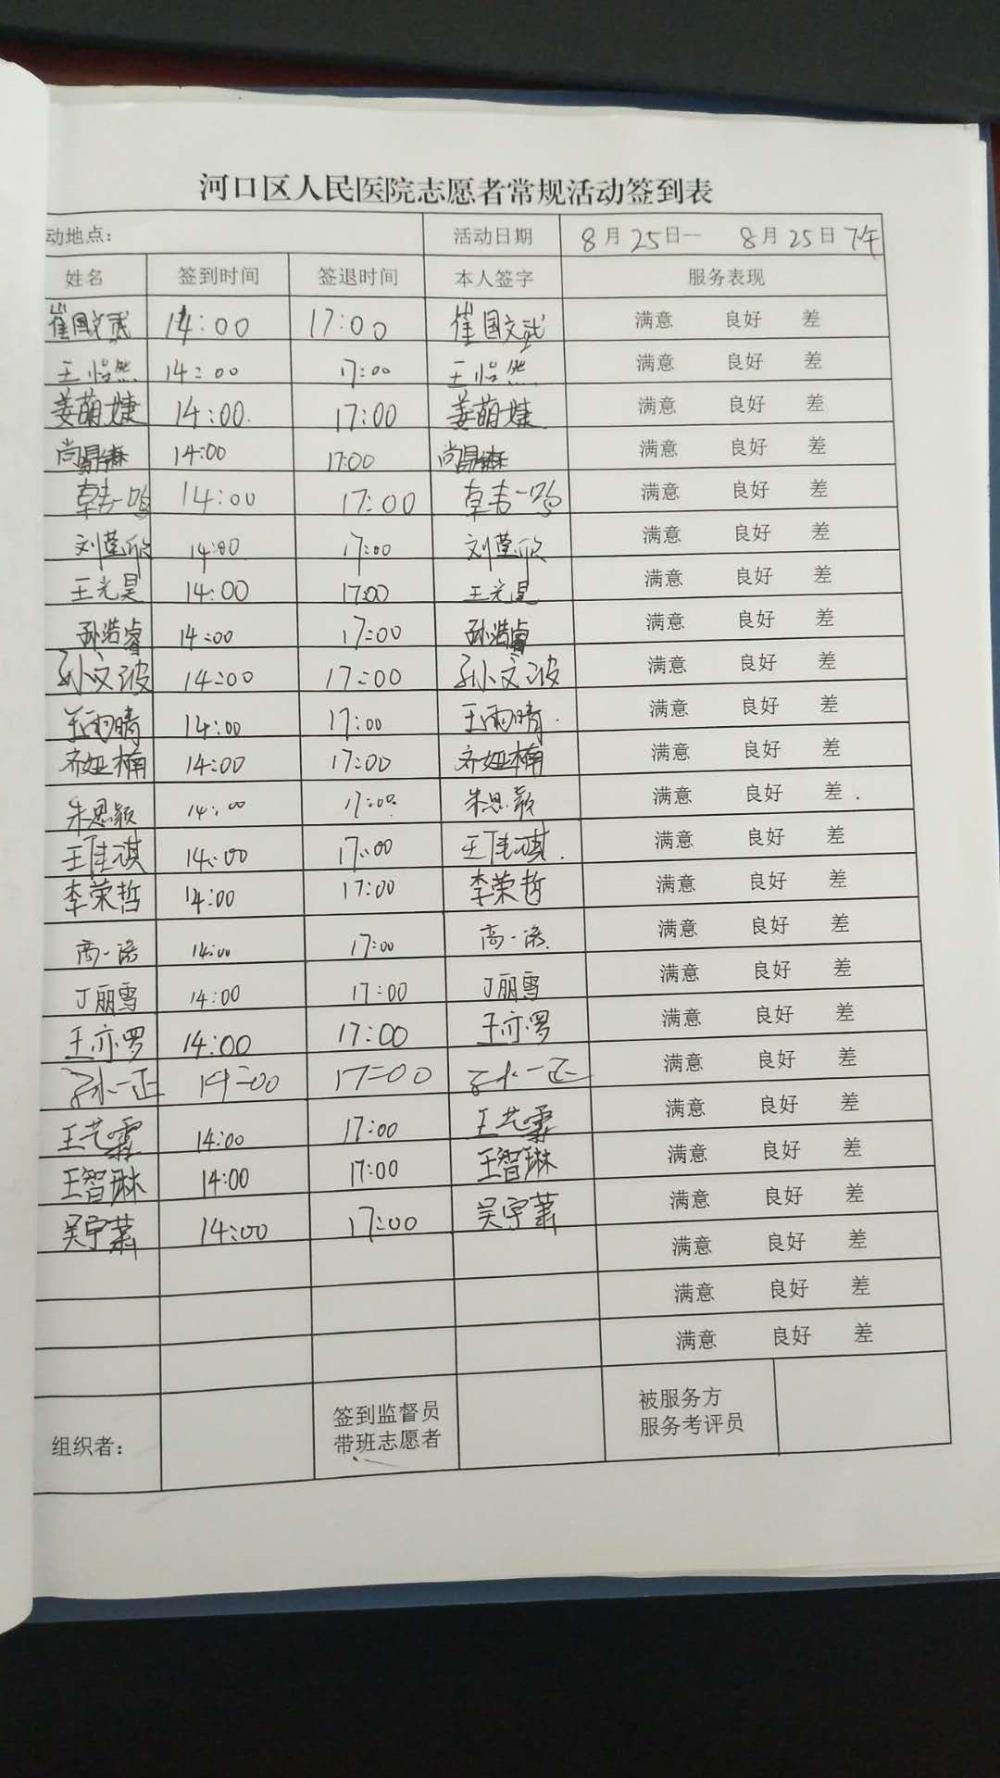 河口区人民医院志愿者常规活动签到表
动地点： 活动日期 8月25日— 8月25日下午
姓名 签到时间 签退时间 本人签字 服务表现
崔国文武 14:00 17:00 崔国文武 满意 良好 差
王怡然 14:00 17:00 王怡然 满意 良好 差
姜萌婕 14:00. 17:00 姜萌婕 满意 良好 差
尚 14:00 17:00 尚 满意 良好 差
韩一鸣 14:00 17:00 韩一鸣 满意 良好 差
刘莹欣 14:00 17:00 刘莹欣 满意 良好 差
王光昊 14:00 17:00 王光昊 满意 良好 差
孙浩睿 14:00 17:00 孙浩睿 满意 良好 差
孙文波 14:00 17:00 孙文波 满意 良好 差
王雨晴 14:00 17:00 王雨晴. 满意 良好 差
齐娅楠 14:00 17:00 齐娅楠 满意 良好 差
朱思颖 14:00 17:00 朱思颖 满意 良好 差.
王佳淇 14:00 17:00 王佳淇. 满意 良好 差
李荣哲 14:00 17:00 李荣哲 满意 良好 差
高一涵 14:00 17:00 高一涵. 满意 良好 差
丁丽雪 14:00 17:00 丁丽雪 满意 良好 差
王亦罗 14:00 17:00 王亦罗 满意 良好 差
一正 14:00 17:00 一正 满意 良好 差
王艺霖 14:00 17:00 王艺霖 满意 良好 差
王智琳 14:00 17:00 王智琳 满意 良好 差
吴宇萧 14:00 17:00 吴宇萧 满意 良好 差
满意 良好 差
满意 良好 差
满意 良好 差
组织者： 签到监督员 被服务方
带班志愿者 服务考评员